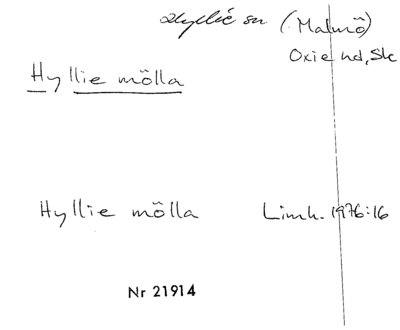 Hyllie sn (Malmö)
Oxie hd, Sk
Hyllie mölla
Hyllie mölla Limh. 1976:16
Nr 21914